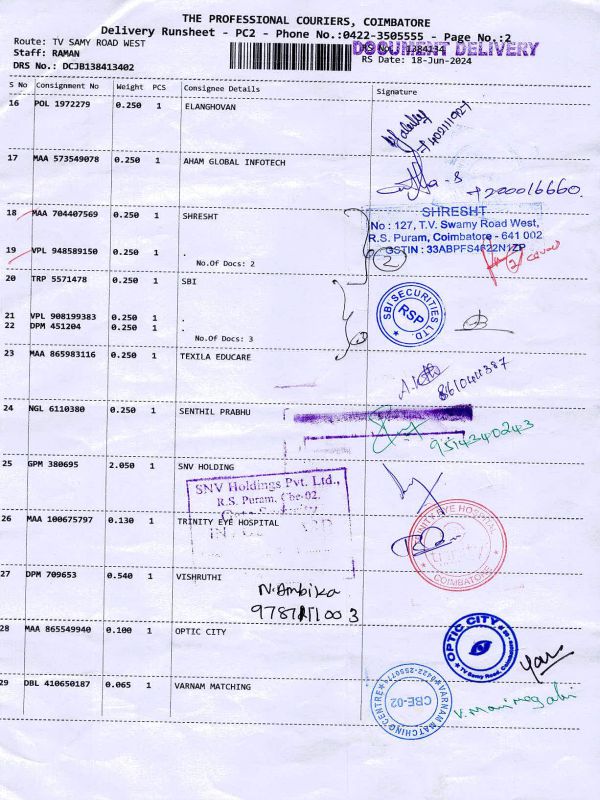 THE PROFESSIONAL COURIERS, COIMBATORE
Delivery Runsheet - PC2 - Phone No.:0422-3505555 - Page No.:2
Route: TV SAMY ROAD WEST
DOCUMENT DELIVERY
Staff: RAMAN
DRS No.: DCJB138413402
RS Date: 18-Jun-2024
S No Consignment No Weight PCS Consignee Details Signature
16 POL 1972279 0.250 1 ELANGHOVAN
17 MAA 573549078 0.250 1 AHAM GLOBAL INFOTECH
18 MAA 704407569 0.250 1 SHRESHT
SHRESHT
No : 127, T.V. Swamy Road West,
R.S. Puram, Coimbatore - 641 002
GSTIN : 33ABPFS4622N1ZP
19 VPL 948589150 0.250 1 .
No.Of Docs: 2
2
20 TRP 5571478 0.250 1 SBI
SBI SECURITIES LTD.
RSP
21 VPL 908199383 0.250 1 .
22 DPM 451204 0.250 1 .
No.Of Docs: 3
23 MAA 865983116 0.250 1 TEXILA EDUCARE
24 NGL 6110380 0.250 1 SENTHIL PRABHU
9514340243
25 GPM 380695 2.050 1 SNV HOLDING
SNV Holdings Pvt. Ltd.,
R.S. Puram, Cbe-02.
26 MAA 100675797 0.130 1 TRINITY EYE HOSPITAL
TRINITY EYE HOSPITAL
trinity
COIMBATORE
27 DPM 709653 0.540 1 VISHRUTHI
N.Ambika
28 MAA 865549940 0.100 1 OPTIC CITY
OPTIC CITY
29 DBL 410650187 0.065 1 VARNAM MATCHING
VARNAM MATCHING CENTRE
CBE-02